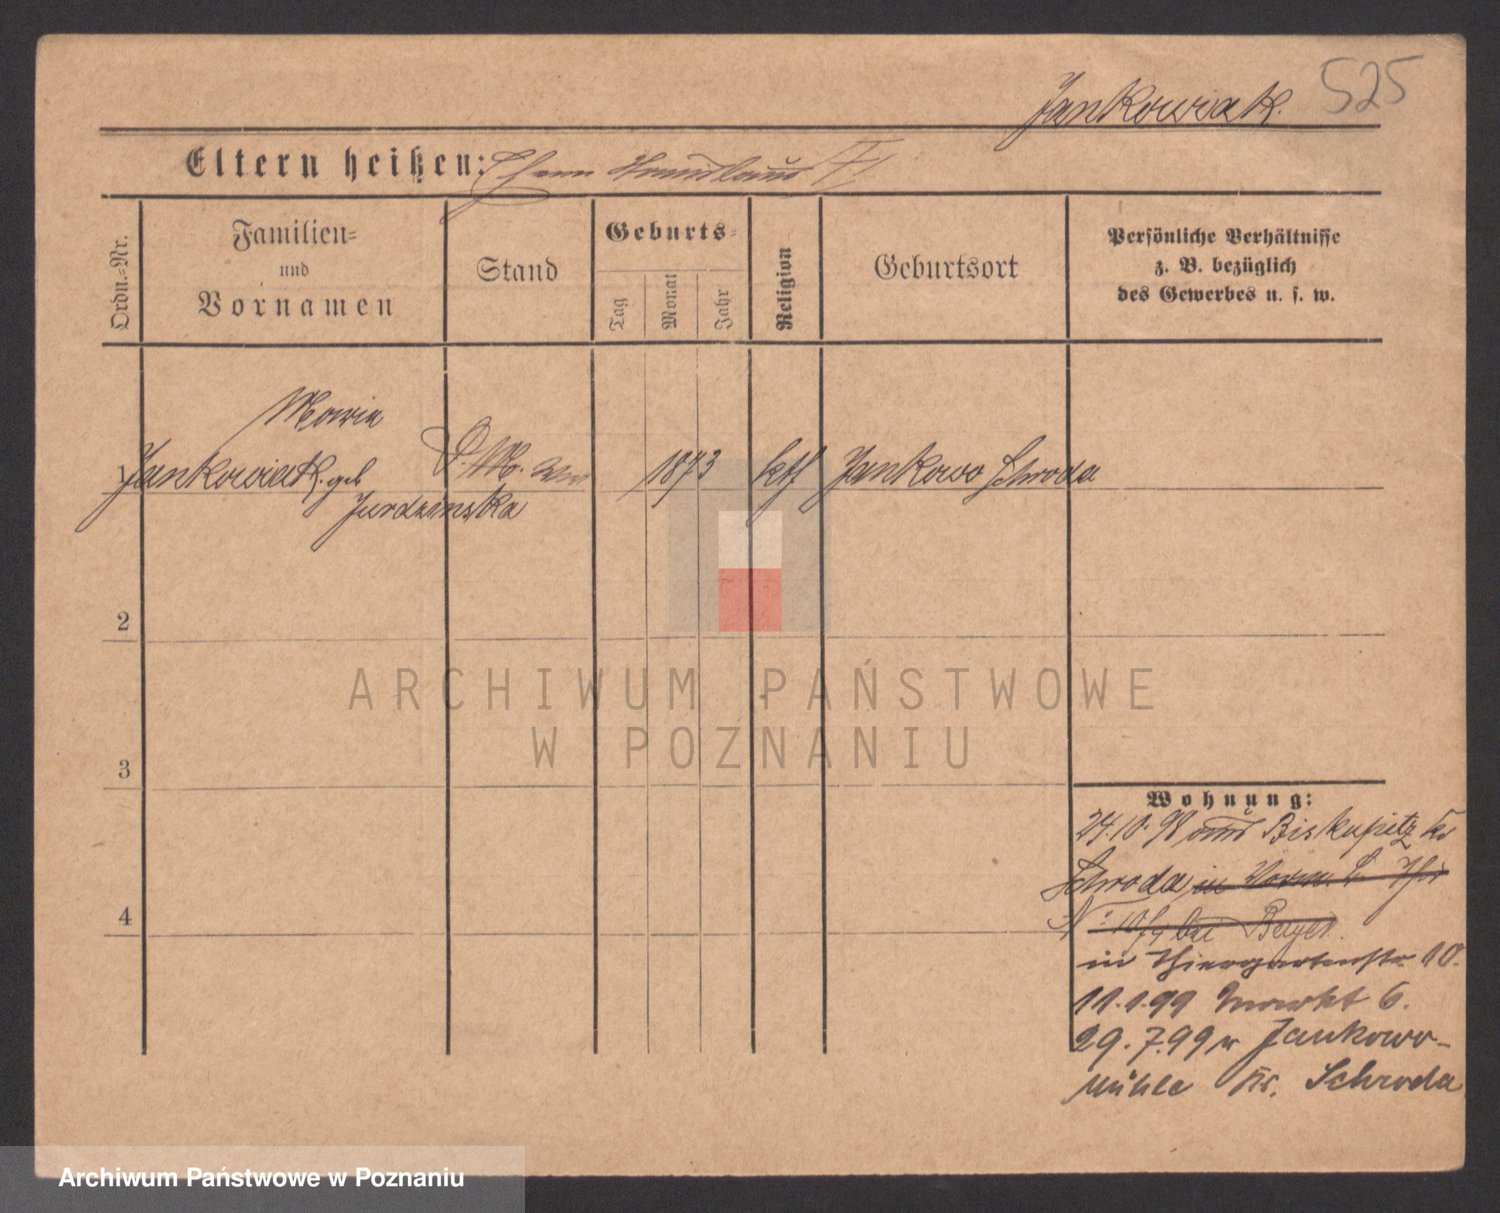 525
Jankowiak.
Eltern heißen:
Ordn.-Nr.
Familien-
und
Vornamen
Stand
Geburts-
Tag
Monat
Jahr
Religion
Geburtsort
Persönliche Verhältnisse
z. B. bezüglich
des Gewerbes u. s. w.
Maria
Jankowiak geb
Jurdzinska
D. M.
1873
ktl
Jankowo Schroda
2
3
4
ARCHIWUM PAŃSTWOWE
W POZNANIU
Wohnung:
24.10.98 aus Biskupitz Kr
Schroda in
bei
in Thiergartenstr 10.
11.1.99 Markt 6.
29.7.99 n Jankowo-
Mühle Kr. Schroda
Archiwum Państwowe w Poznaniu